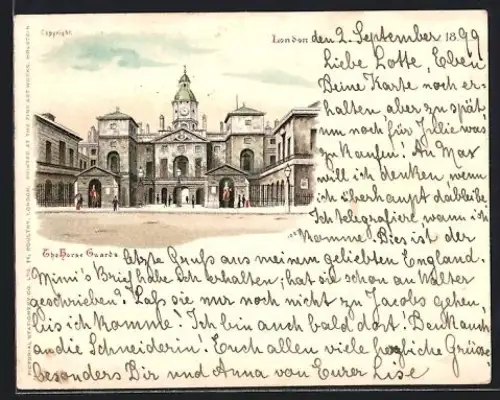 Copyright.
London den 2. September 1899
Liebe Lotte, Eben
Deine Karte noch er-
halten, aber zu spät,
um noch für Julie was
zu kaufen! An Max
will ich denken, wenn
ich überhaupt dableibe.
Ich telegrafiere, wann ich
komme. Dies ist der
The Horse Guards
letzte Gruß aus meinem geliebten England.
Mimi's Brief habe ich erhalten; hat sie schon an Walter
geschrieben? Laß sie nur noch nicht zu Jacobs gehen,
bis ich komme! Ich bin auch bald dort! Denk auch
an die Schneiderin! Euch allen viele herzliche Grüße
besonders Dir und Anna von Eurer Lise